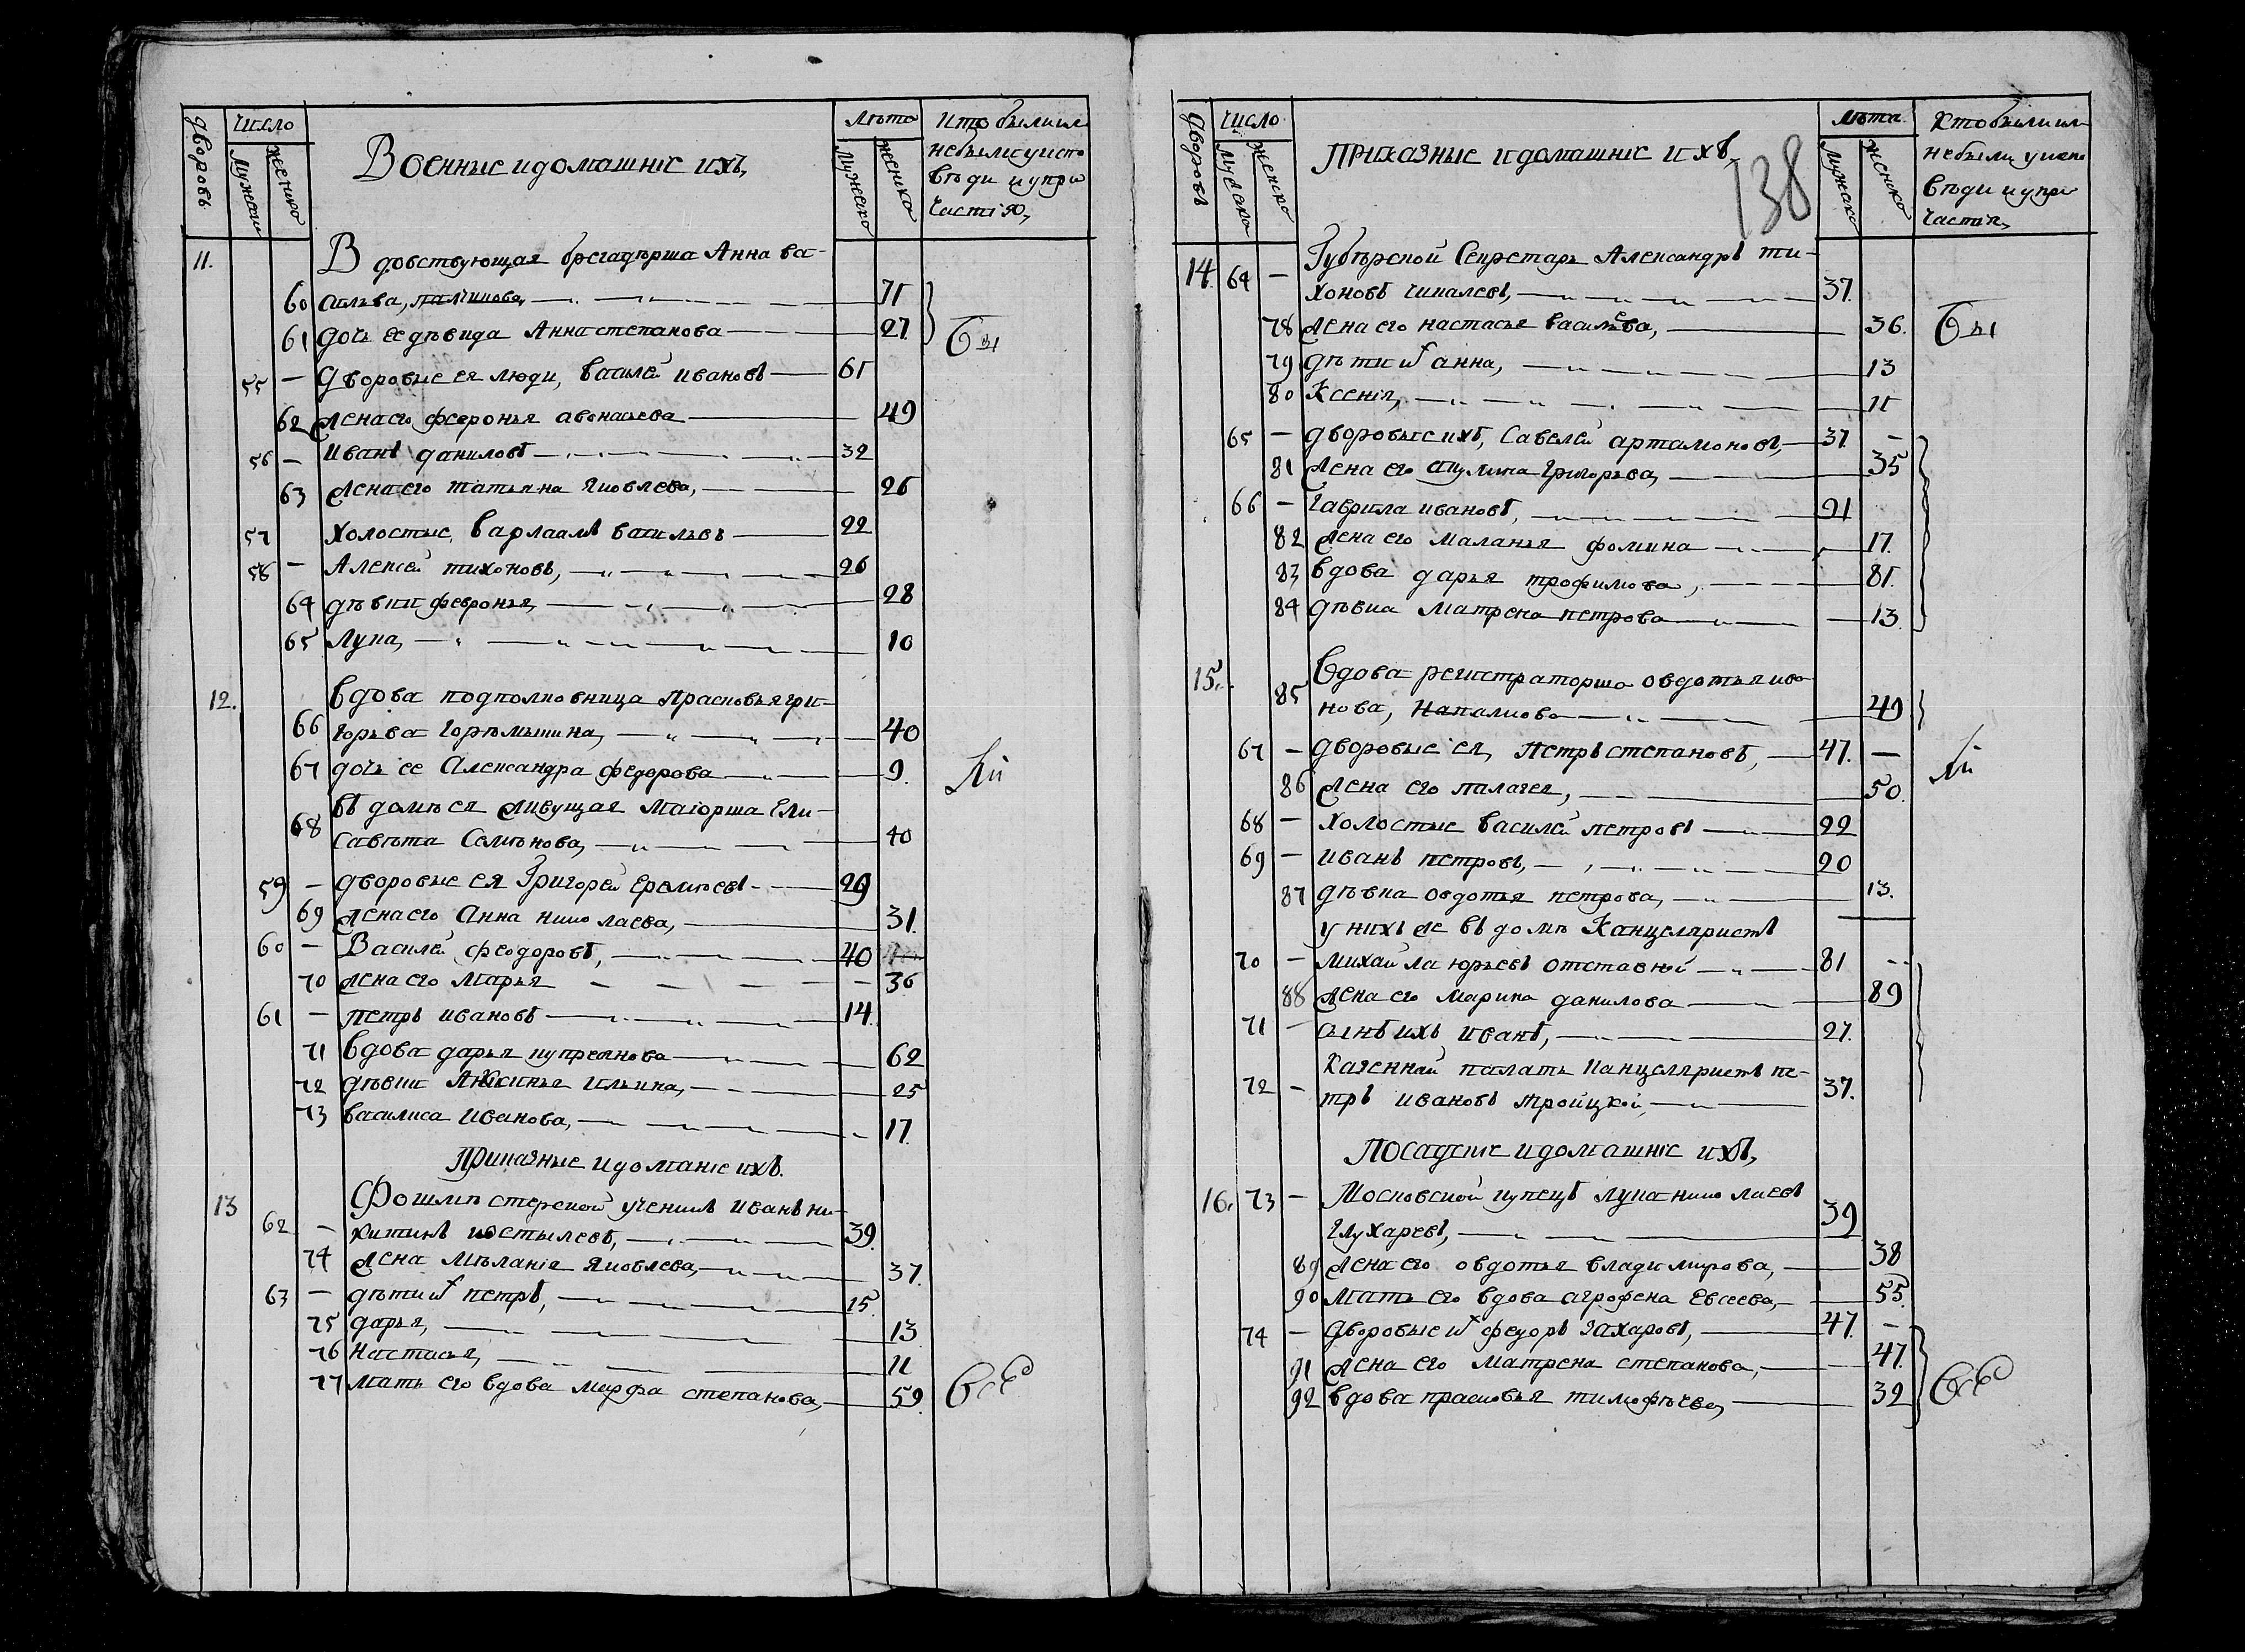 дворовъ
число
мужеска
женска
Военные и домашнiе ихъ,
лѣта
мужеска
женска
кто были или
небыли у испо
вѣди и у при
частiя,
11.
Вдовствующая брегадѣрша Анна ва-
60 сильва, 71
61 дочь ее дѣвица Анна степанова 27
Бы
55 — Дворовые ея люди, василей ивановъ 61
62 жена его февронья авонасьева 49
56 — Иванъ даниловъ 32
63 жена его татьяна яковлева, 26
57 Холостые, варлаамъ васильевъ 22
58 — Алексей тихоновъ, 26
64 дѣвки февронья, 28
65 Лука, 10
12.
Вдова подполковница прасковья гри-
66 горьва горѣмыкина, 40
67 дочь ее Александра федорова 9.
въ домѣ ея живущая маiорша Ели-
68 савѣта Семѣнова, 40
59 — дворовые ея Григорей еремѣевъ 29
69 жена его Анна николаева, 31.
60 — Василей феодоровъ, 40
70 жена его Марья 36
61 — петръ ивановъ 14.
71 вдова дарья купреянова 62
72 дѣвки Аксинья ильина, 25
73 василиса иванова, 17.
Приказные и доманiе ихъ.
13
62 — иванъ ни-
китинъ костылевъ, 39.
74 жена мѣланiя яковлева, 37.
63 — дѣти их петръ, 15.
75 дарья, 13
76 настасья, 11
77 мать его вдова марфа степанова, 59.
Всѣ
дворовъ
число
мужеска
женско
Приказные и домашнiе ихъ,
138
лѣта
мужеска
женско
кто были или
небыли у испо
вѣди и у при
частiя,
14. 64 — Губѣрской Секретарь Александръ ти-
хоновъ чикалевъ, 37.
78 жена его настасья васильева, 36.
Бы
79 дѣти их анна, 13
80 Ксенiя, 11
65 — дворовые ихъ, Савелей артамоновъ, 37. —
81 жена его акулина григорьва, 35
66 — гаврила ивановъ, 21
82 жена его маланья фомина 17.
83 вдова дарья трофимова, 81.
84 дѣвка матрена петрова 13.
15.
85 Вдова регистраторша овдотья ива
нова, 49
67 — дворовые ея, петръ степановъ, 47. —
86 жена его палагея, 50.
68 — холостые василей петровъ 22
69 — иванъ петровъ, 20
87 дѣвка овдотья петрова, 13.
у нихъ же въ домѣ Канцеляристъ
70 — михайла юрьевъ отставной 81
88 жена его марина данилова 89
71 — сынъ ихъ иванъ, 27.
Казенной палаты канцеляристъ пе-
72 — тръ ивановъ троицкой, 37.
Посадскiе и домашнiе ихъ,
16. 73 — Московской купецъ лука николаевъ
глухаревъ, 39
89 жена его овдотья владимирова, 38
90 мать его вдова агрофена евсеева, 55.
74 — дворовые их федоръ захаровъ, 47. —
91 жена его матрена степанова, 47.
92 вдова прасковья тимофѣева, 32
Всѣ